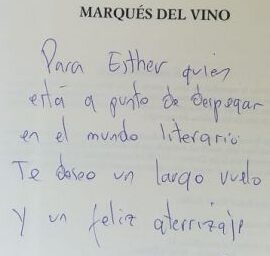 MARQUÉS DEL VINO
Para Esther quien
está a punto de despegar
en el mundo literario
Te deseo un largo vuelo
Y un feliz aterrizaje